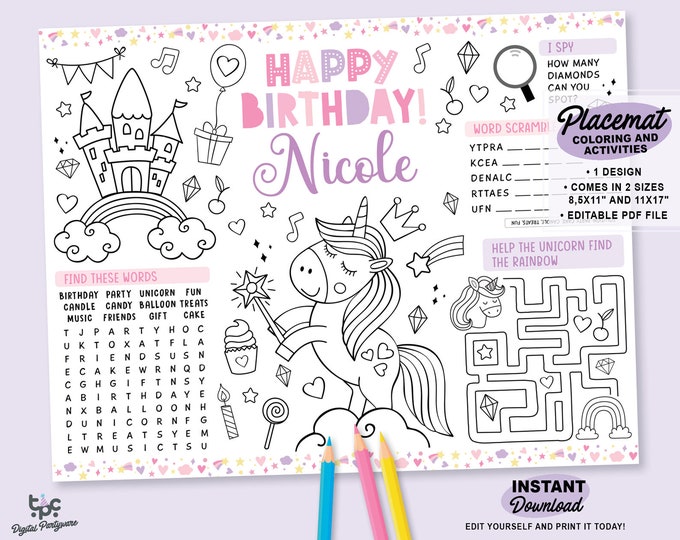 HAPPY
BIRTHDAY!
Nicole
I SPY
HOW MANY
DIAMONDS
CAN YOU
SPOT?
WORD SCRAM
YTPRA
KCEA
DENALC
RTTAES
UFN
TREATS, FUN
Placemat
COLORING AND
ACTIVITIES
• 1 DESIGN
• COMES IN 2 SIZES
8,5X11" AND 11X17"
• EDITABLE PDF FILE
FIND THESE WORDS
BIRTHDAY PARTY UNICORN FUN
CANDLE CANDY BALLOON TREATS
MUSIC FRIENDS GIFT CAKE
T J P A R T Y H O C
U K T O X A T F L A
F R I E N D S U S N
E C A K E W R N Q D
C G H G I F T N S Y
A B I R T H D A Y E
N X B A L L O O N H
D U N I C O R N F G
L T R E A T S Y E M
E W M U S I C T S U
HELP THE UNICORN FIND
THE RAINBOW
tpc
Digital Partyware
INSTANT
Download
EDIT YOURSELF AND PRINT IT TODAY!